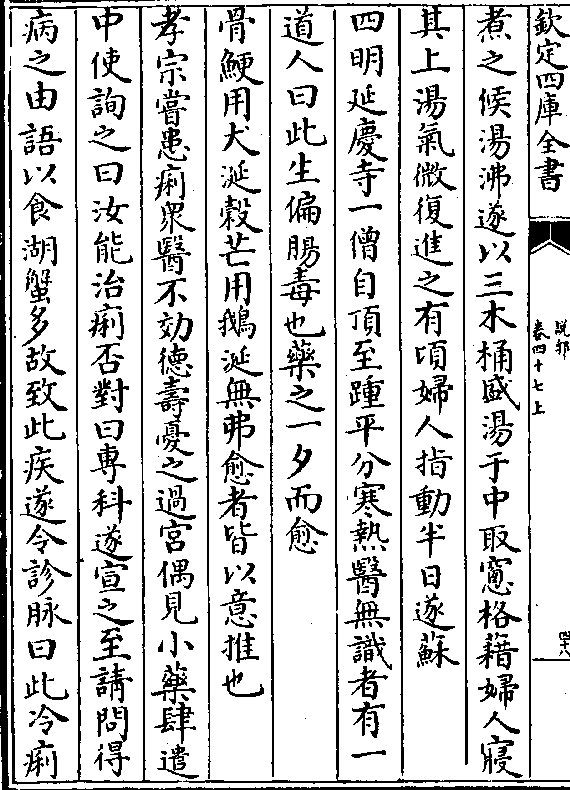 欽定四庫全書
說郛
卷四十七上
四十八
煮之候湯沸遂以三木桶盛湯于中取窻格藉婦人寢
其上湯氣微復進之有頃婦人指動半日遂蘇
四明延慶寺一僧自頂至踵平分寒熱醫無識者有一
道人曰此生偏腸毒也藥之一夕而愈
骨鯁用犬涎榖芒用鵝涎無弗愈者皆以意推也
孝宗嘗患痢衆醫不効德壽憂之過宮偶見小藥肆遣
中使詢之曰汝能治痢否對曰専科遂宣之至請問得
病之由語以食湖蟹多故致此疾遂令診脉曰此冷痢